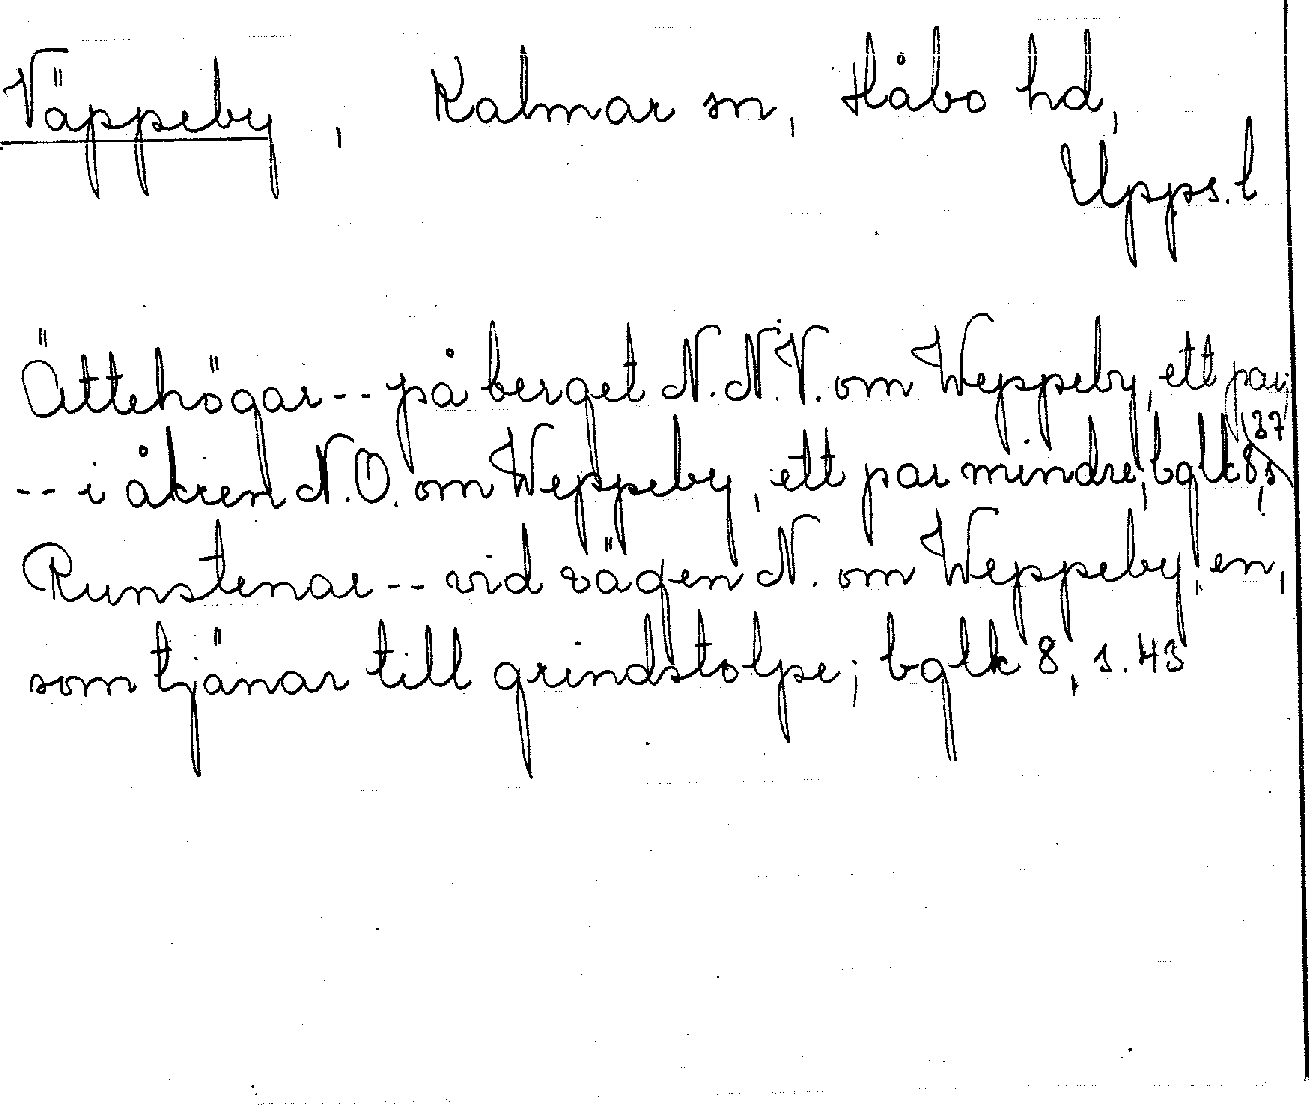 Väppeby, Kalmar sn, Håbo hd,
Upps. l
Ättehögar -- på berget N.N.V. om Weppeby, ett par;
-- i åkren N.O. om Weppeby, ett par mindre; bglk 8, s 37
Runstenar -- vid vägen N. om Weppeby, en,
som tjänar till grindstolpe; bglk 8, s. 43